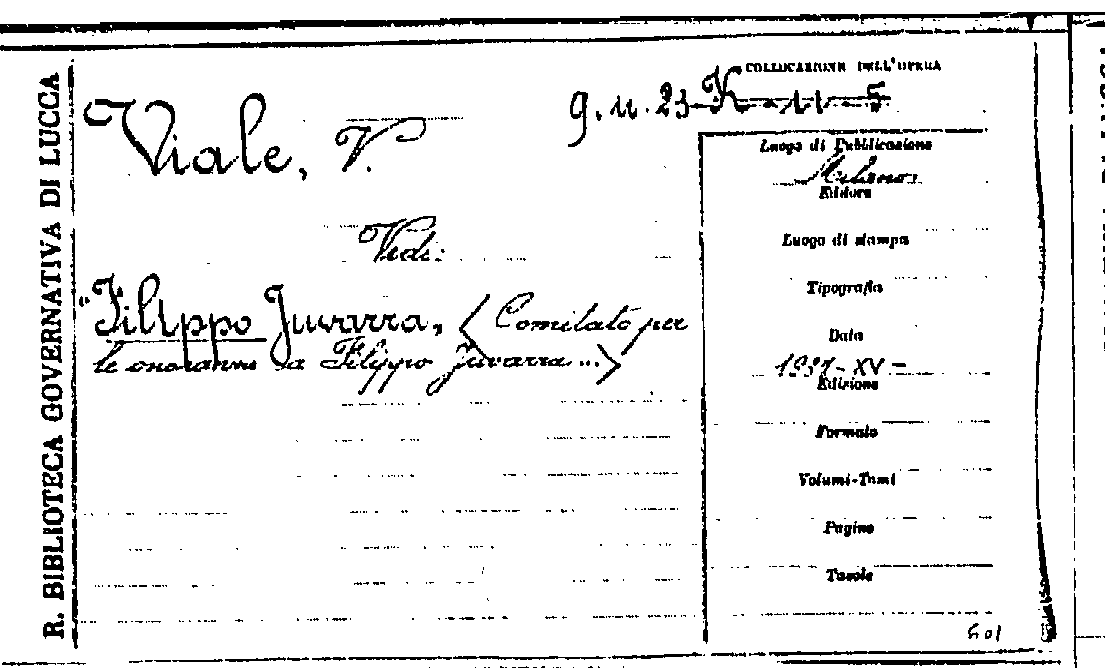 R. BIBLIOTECA GOVERNATIVA DI LUCCA
COLLOCAZIONE DELL'OPERA
Viale, V.
Vedi:
"Filippo Juvarra, <Comitato per
le onoranze a Filippo Juvarra...>
Luogo di Pubblicazione
Milano
Editore
Luogo di stampa
Tipografia
Data
1937-XV-
Edizione
Formato
Volumi-Tomi
Pagine
Tavole